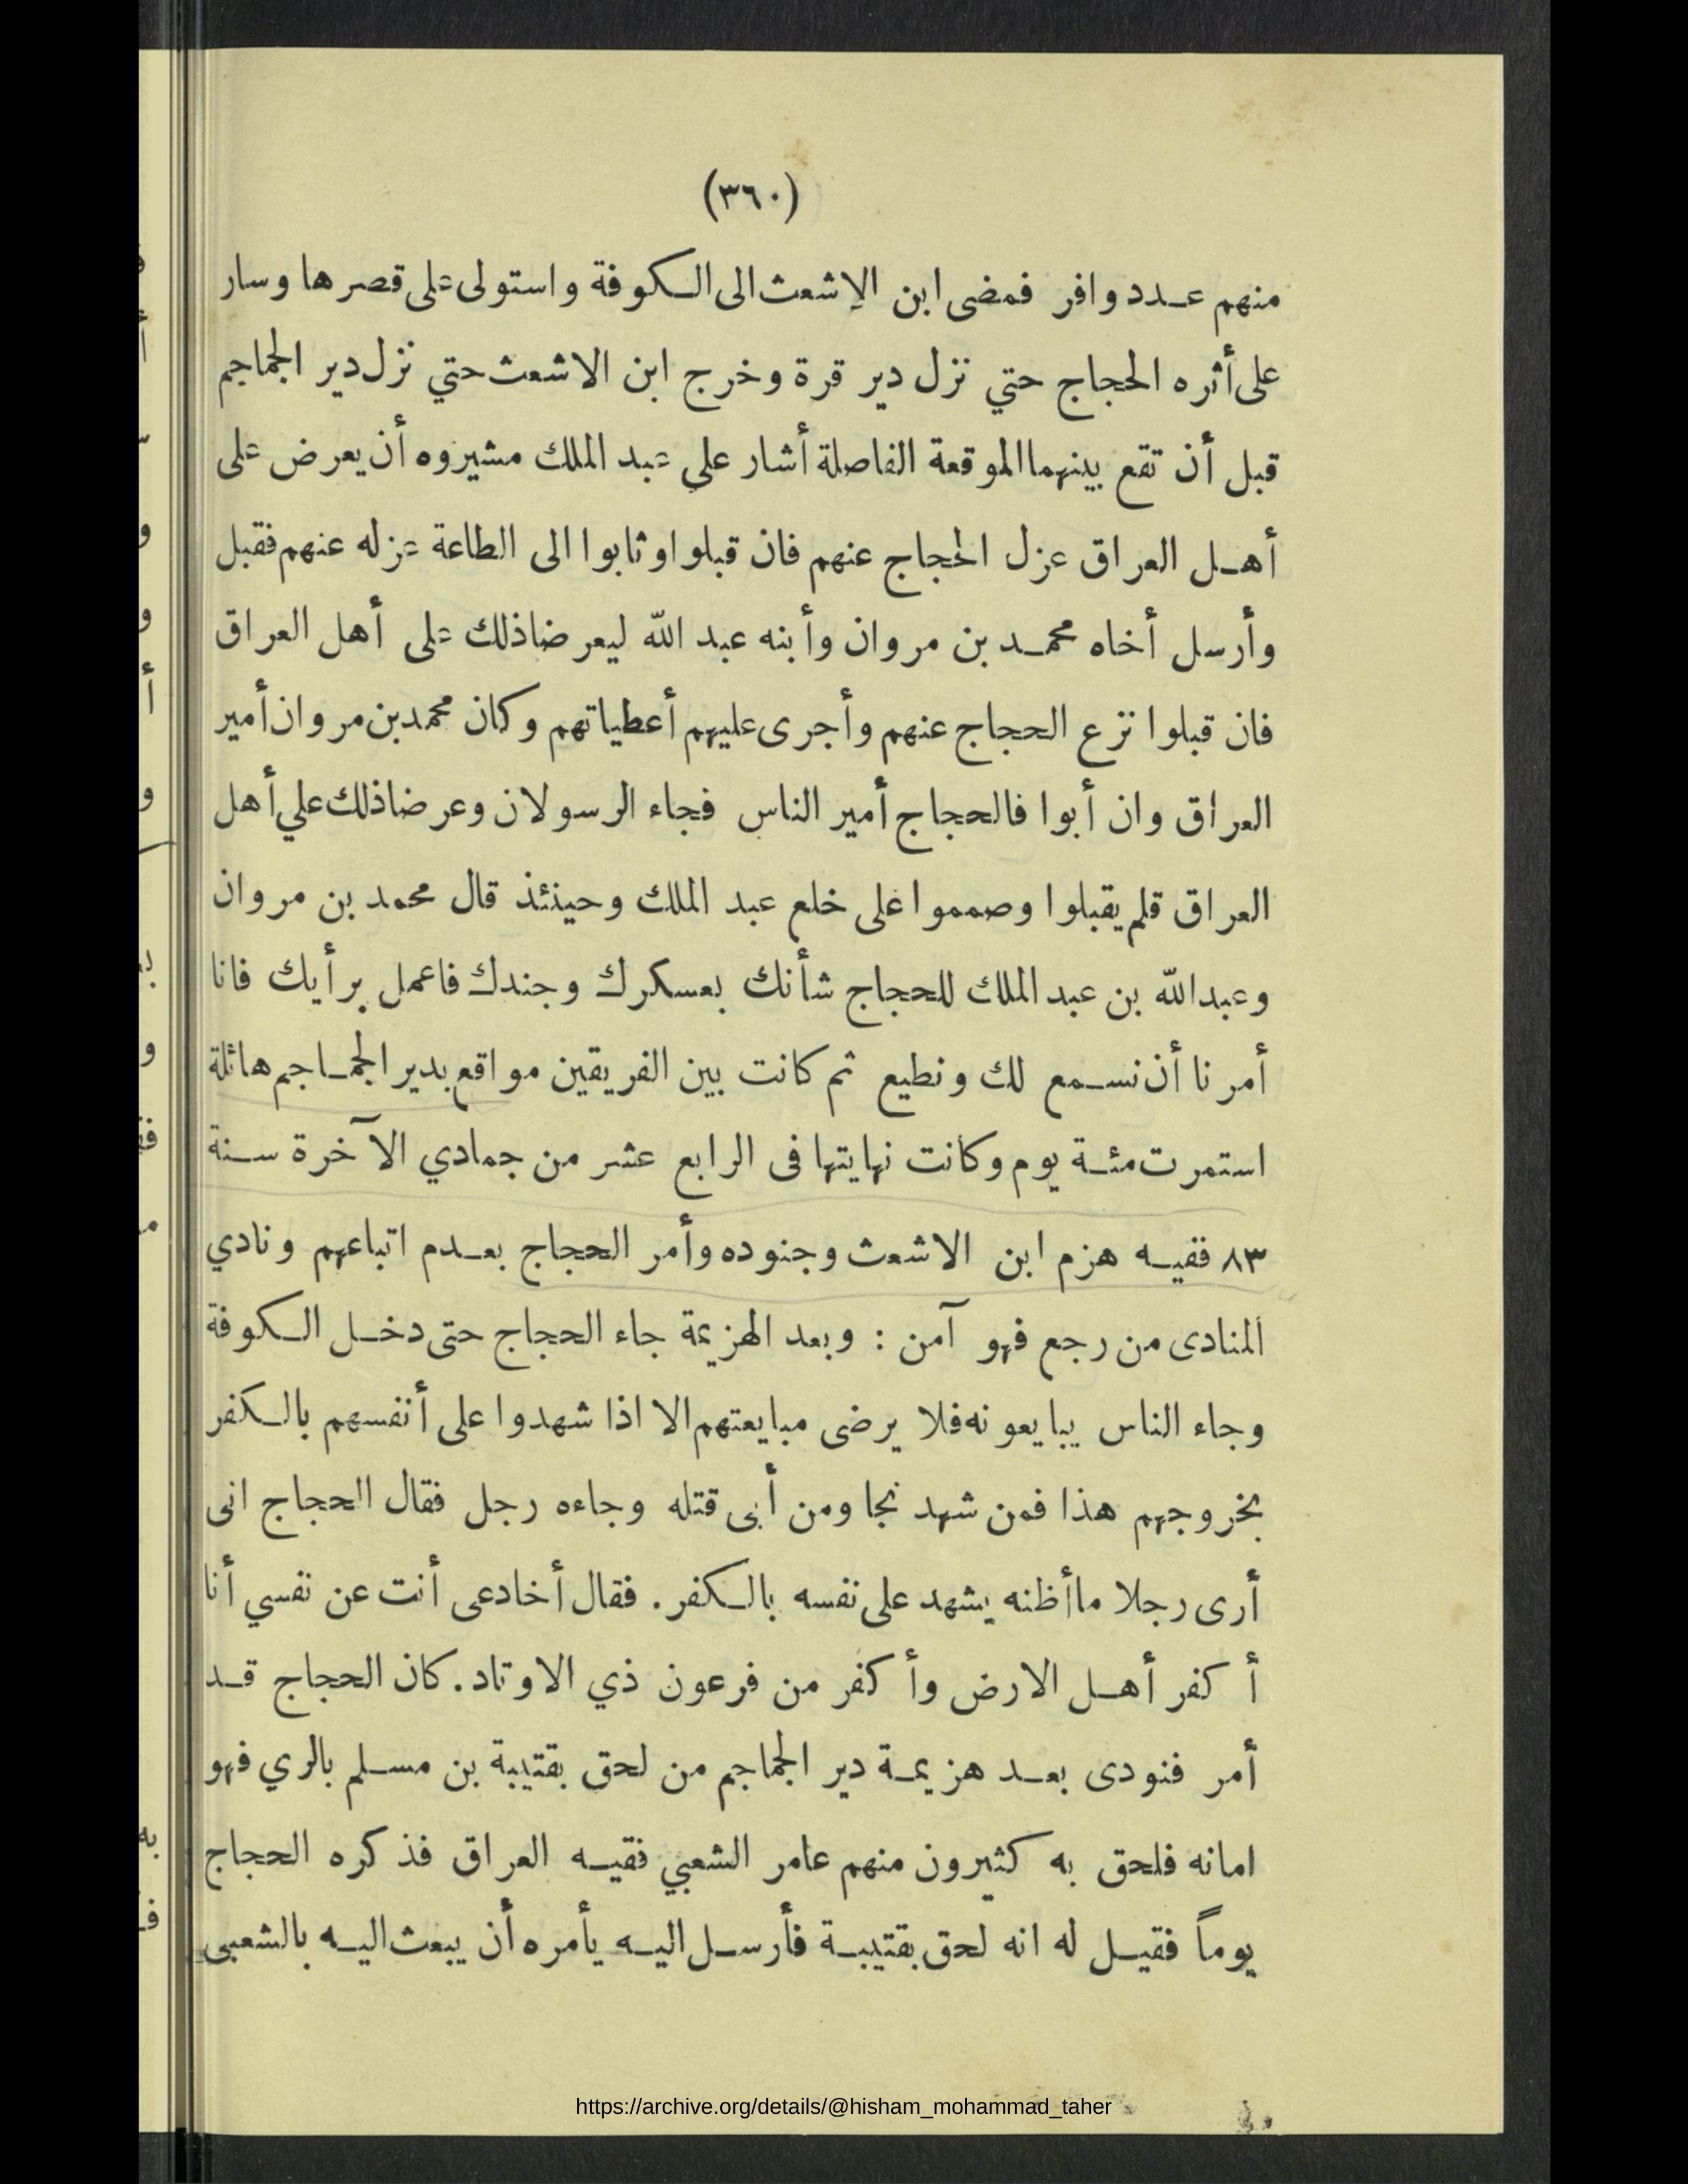 (٣٦٠)
منهم عدد وافر فمضى ابن الإشعث الى الكوفة واستولى على قصرها وسار
على أثره الحجاج حتي نزل دير قرة وخرج ابن الاشعث حتي نزل دير الجماجم
قبل أن تقع بينهما الموقعة الفاصلة أشار على عبد الملك مشيروه أن يعرض على
أهل العراق عزل الحجاج عنهم فان قبلوا وثابوا الى الطاعة عزله عنهم فقبل
وأرسل أخاه محمد بن مروان وأبنه عبد الله ليعرضا ذلك على أهل العراق
فان قبلوا نزع الحجاج عنهم وأجرى عليهم أعطياتهم وكان محمد بن مروان أمير
العراق وان أبوا فالحجاج أمير الناس فجاء الرسولان وعرضا ذلك علي أهل
العراق قلم يقبلوا وصمموا على خلع عبد الملك وحينئذ قال محمد بن مروان
وعبد الله بن عبد الملك للحجاج شأنك بعسكرك وجندك فاعمل برأيك فانا
أمرنا أن نسمع لك ونطيع ثم كانت بين الفريقين مواقع بدير الجماجم هائلة
استمرت مئة يوم وكانت نهايتها فى الرابع عشر من جمادي الآخرة سنة
٨٣ ففيه هزم ابن الاشعث وجنوده وأمر الحجاج بعدم اتباعهم ونادي
المنادى من رجع فهو آمن : وبعد الهزيمة جاء الحجاج حتى دخل الكوفة
وجاء الناس يبايعونه فلا يرضى مبايعتهم الا اذا شهدوا على أنفسهم بالكفر
بخروجهم هذا فمن شهد نجا ومن أبى قتله وجاءه رجل فقال الحجاج انى
أرى رجلا ما أظنه يشهد على نفسه بالكفر. فقال أخادعى أنت عن نفسي أنا
أكفر أهل الارض وأكفر من فرعون ذي الاوتاد. كان الحجاج قد
أمر فنودى بعد هزيمة دير الجماجم من لحق بقتيبة بن مسلم بالري فهو
امانه فلحق به كثيرون منهم عامر الشعبي فقيه العراق فذكره الحجاج
يوماً فقيل له انه لحق بقتيبة فأرسل اليه يأمره أن يبعث اليه بالشعبى
https://archive.org/details/@hisham_mohammad_taher